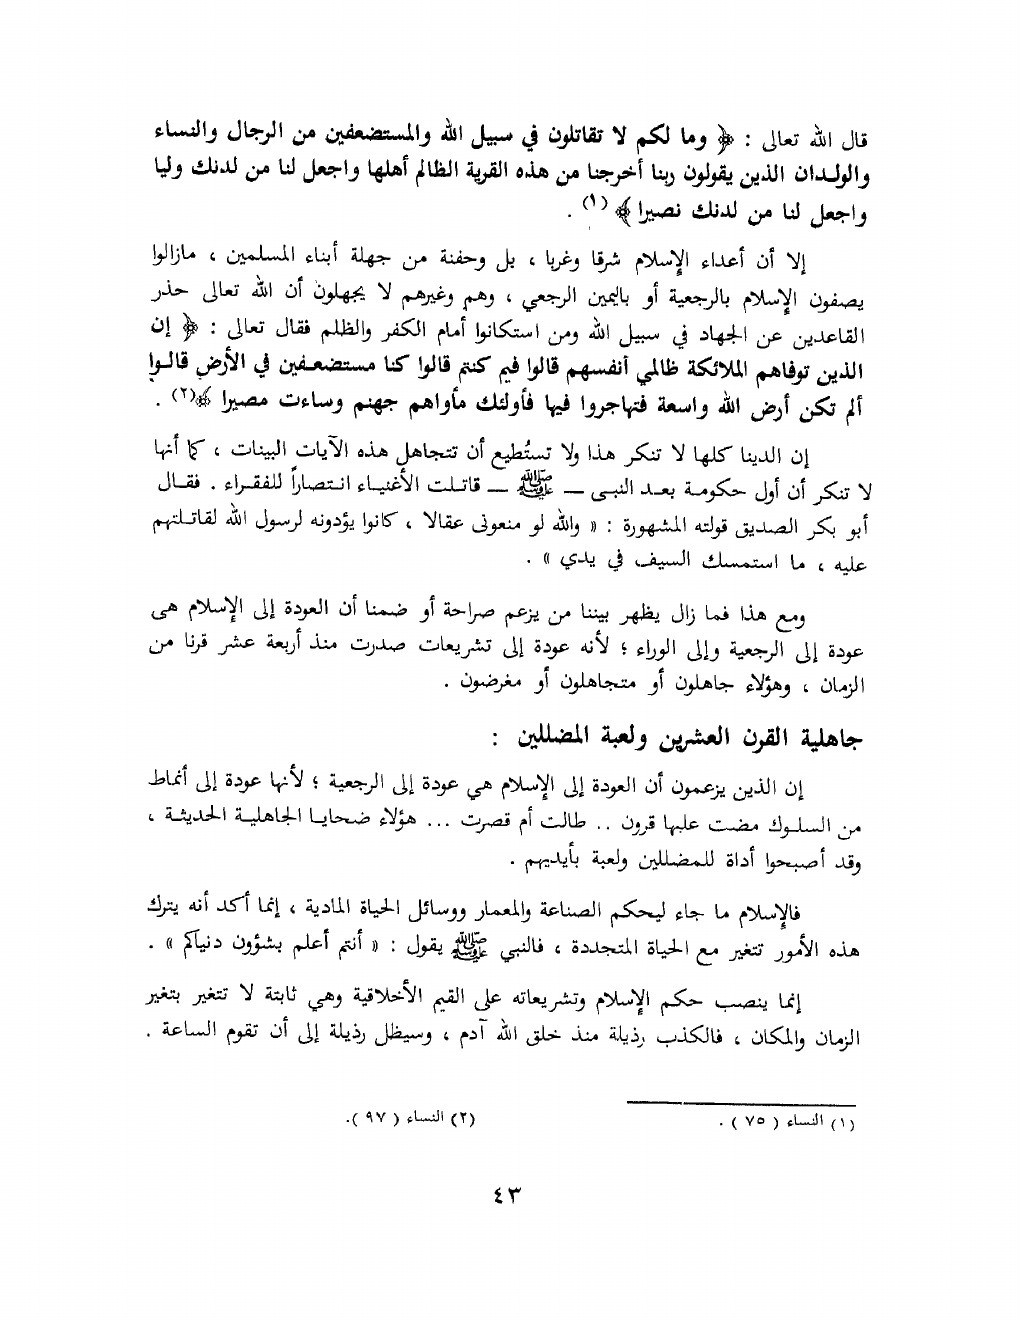 قال الله تعالى : ﴿ وما لكم لا تقاتلون في سبيل الله والمستضعفين من الرجال والنساء
والولدان الذين يقولون ربنا أخرجنا من هذه القرية الظالم أهلها واجعل لنا من لدنك وليا
واجعل لنا من لدنك نصيرا ﴾ (١) .
إلا أن أعداء الإسلام شرقا وغربا ، بل وحفنة من جهلة أبناء المسلمين ، مازالوا
يصفون الإسلام بالرجعية أو باليمين الرجعي ، وهم وغيرهم لا يجهلون أن الله تعالى حذر
القاعدين عن الجهاد في سبيل الله ومن استكانوا أمام الكفر والظلم فقال تعالى : ﴿ إن
الذين توفاهم الملائكة ظالمي أنفسهم قالوا فيم كنتم قالوا كنا مستضعفين في الأرض قالوا
ألم تكن أرض الله واسعة فتهاجروا فيها فأولئك مأواهم جهنم وساءت مصيرا ﴾(٢) .
إن الدينا كلها لا تنكر هذا ولا تستُطيع أن تتجاهل هذه الآيات البينات ، كما أنها
لا تنكر أن أول حكومة بعد النبى — ﷺ — قاتلت الأغنياء انتصاراً للفقراء . فقال
أبو بكر الصديق قولته المشهورة : « والله لو منعونى عقالا ، كانوا يؤدونه لرسول الله لقاتلتهم
عليه ، ما استمسك السيف في يدي » .
ومع هذا فما زال يظهر بيننا من يزعم صراحة أو ضمنا أن العودة إلى الإسلام هى
عودة إلى الرجعية وإلى الوراء ؛ لأنه عودة إلى تشريعات صدرت منذ أربعة عشر قرنا من
الزمان ، وهؤلاء جاهلون أو متجاهلون أو مغرضون .
جاهلية القرن العشرين ولعبة المضللين :
إن الذين يزعمون أن العودة إلى الإسلام هي عودة إلى الرجعية ؛ لأنها عودة إلى أنماط
من السلوك مضت عليها قرون .. طالت أم قصرت ... هؤلاء ضحايا الجاهلية الحديثة ،
وقد أصبحوا أداة للمضللين ولعبة بأيديهم .
فالإسلام ما جاء ليحكم الصناعة والمعمار ووسائل الحياة المادية ، إنما أكد أنه يترك
هذه الأمور تتغير مع الحياة المتجددة ، فالنبي ﷺ يقول : « أنتم أعلم بشؤون دنياكم » .
إنما ينصب حكم الإسلام وتشريعاته على القيم الأخلاقية وهي ثابتة لا تتغير بتغير
الزمان والمكان ، فالكذب رذيلة منذ خلق الله آدم ، وسيظل رذيلة إلى أن تقوم الساعة .
(١) النساء ( ٧٥ ) . (٢) النساء ( ٩٧ ).
٤٣